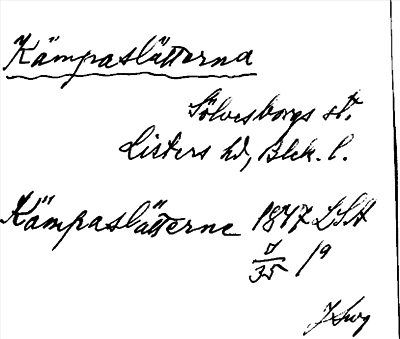 Kämpaslätterna
Sölvesborgs st.
Listers hd, Blek. l.
Kämpaslätterne 1847 LSA
7/35 /9